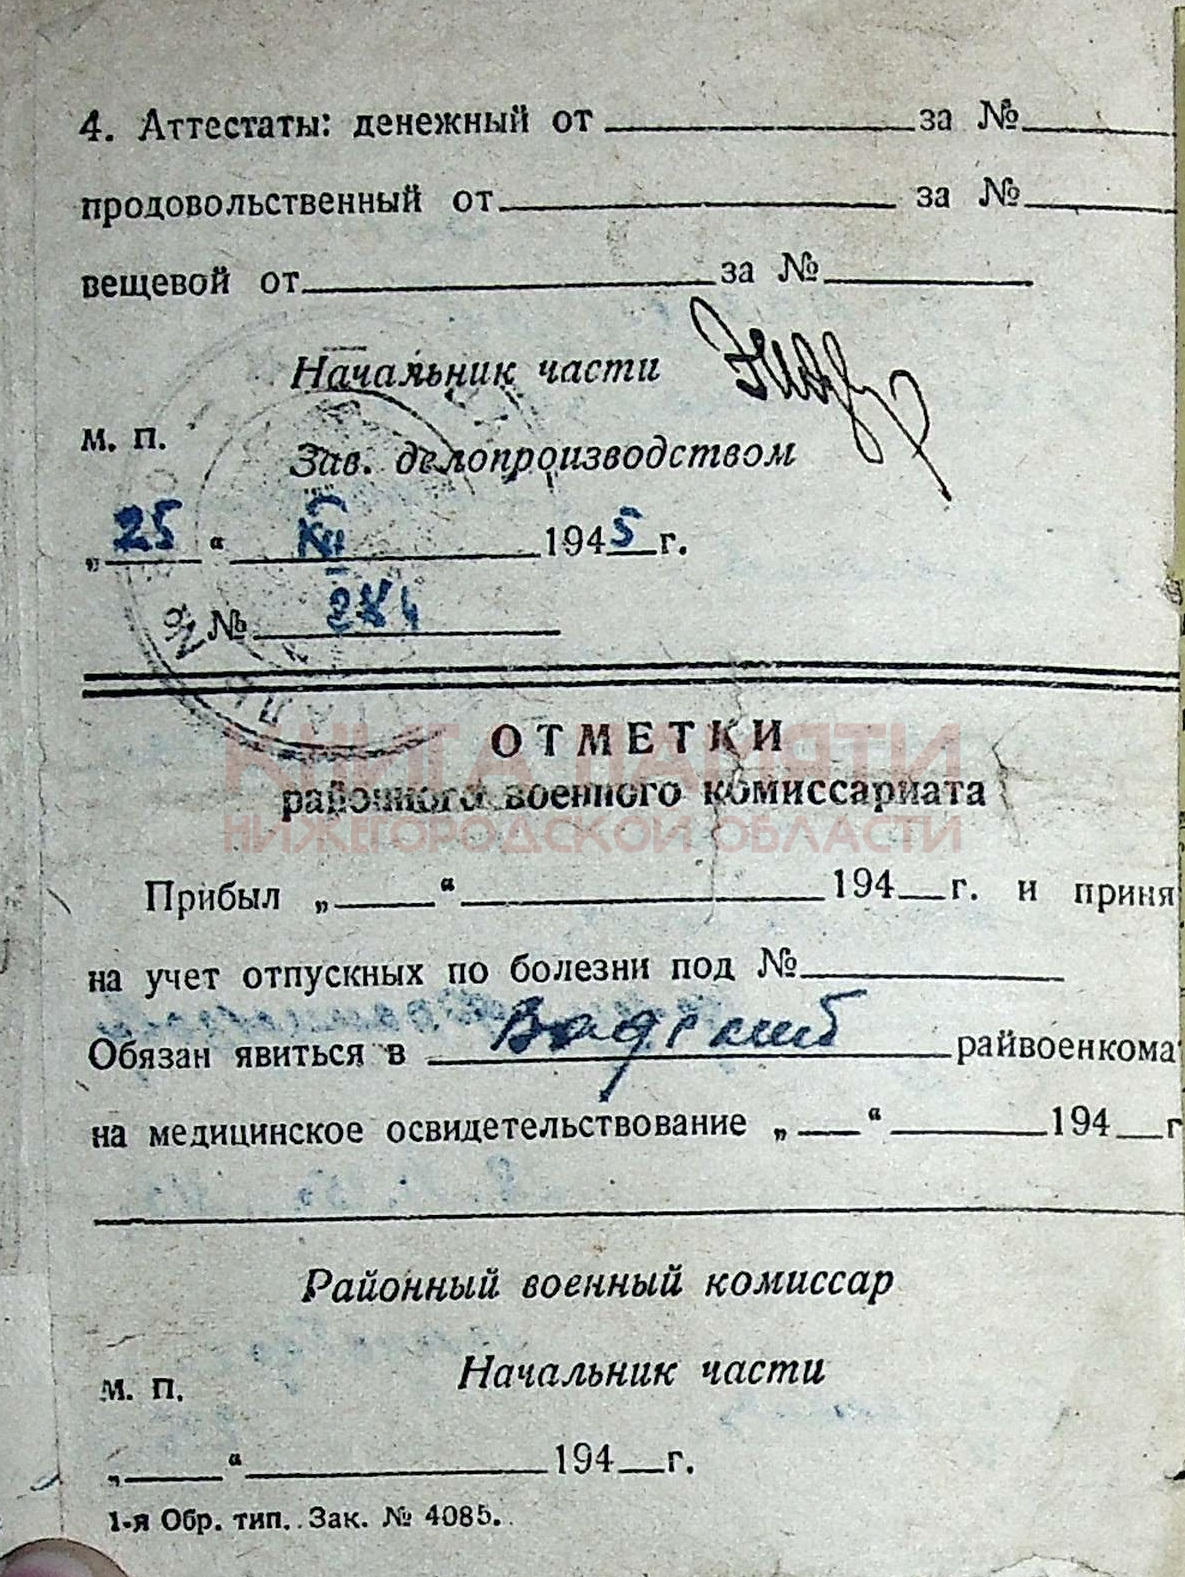 4. Аттестаты: денежный от за №
продовольственный от за №
вещевой от за №
Начальник части
м. п.
Зав. делопроизводством
„25“ XII 1945 г.
№
№
ОТМЕТКИ
КНИГА ПАМЯТИ
районного военного комиссариата
НИЖЕГОРОДСКОЙ ОБЛАСТИ
Прибыл „ “ 194 г. и приня
на учет отпускных по болезни под №
Обязан явиться в Вадский райвоенкома
на медицинское освидетельствование „ “ 194 г
Районный военный комиссар
Начальник части
м. п.
„ “ 194 г.
1-я Обр. тип. Зак. № 4085.